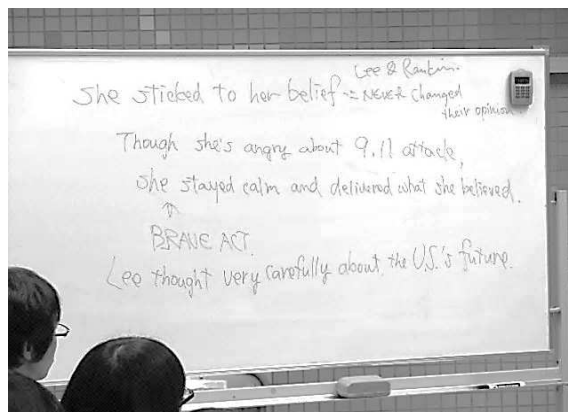 Lee & Rankin.
She sticked to her belief ⇒ NEVER changed
their opinion
Though she's angry about 9.11 attack,
she stayed calm and delivered what she believed.
↑
BRAVE ACT.
Lee thought very carefully about the U.S.'s future.